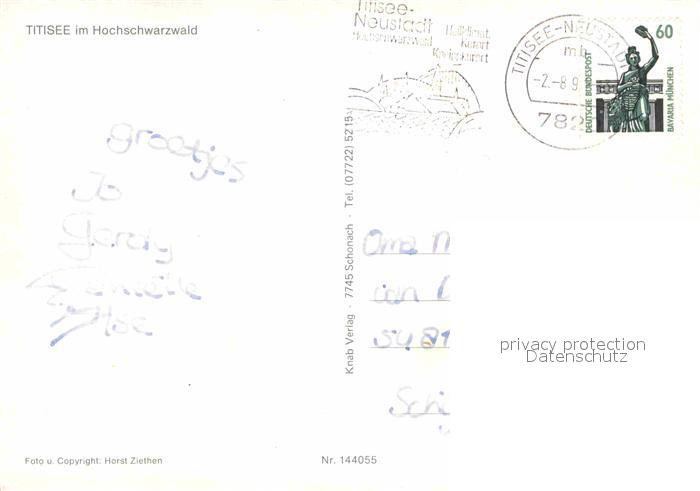 TITISEE im Hochschwarzwald
Titisee-
Neustadt
Hochschwarzwald
Heilklimat.
Kurort
Kneippkurort
TITISEE-NEUSTADT
mb
-2.-8.9
782
60
DEUTSCHE BUNDESPOST
BAVARIA MÜNCHEN
groetjes
Jo
Gerdy
Ilse
Knab Verlag · 7745 Schonach · Tel. (07722) 5215
Oma
van
5481
Schi
privacy protection
Datenschutz
Foto u. Copyright: Horst Ziethen
Nr. 144055